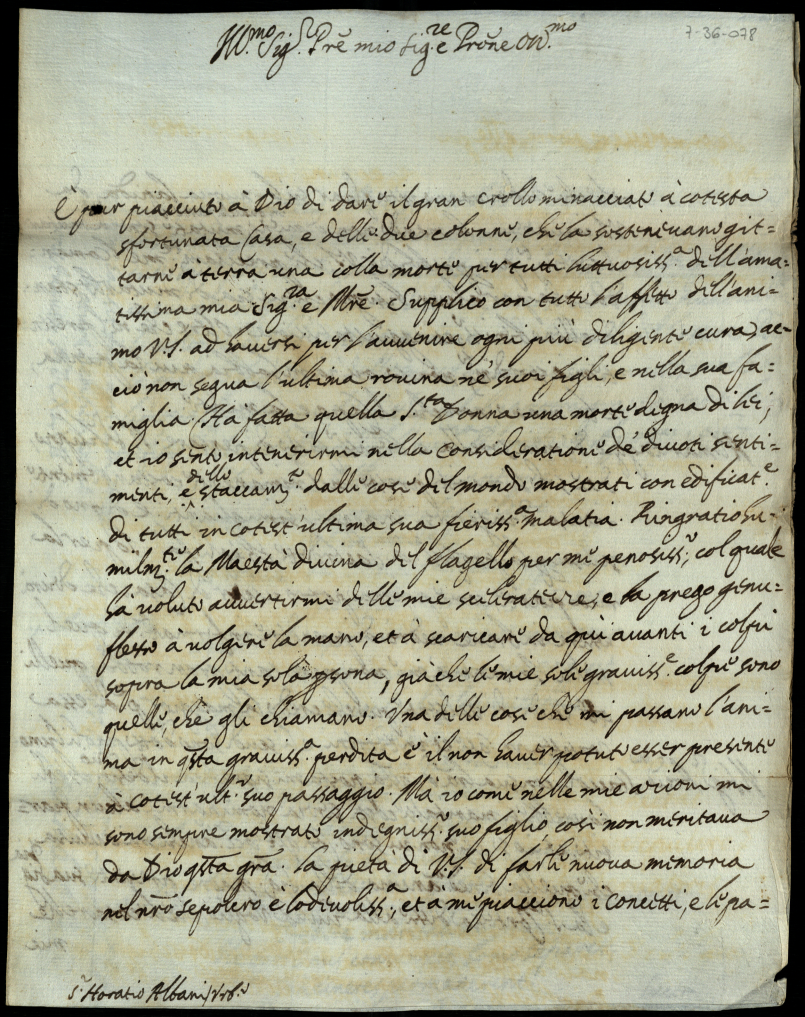 7-36-078
Ill.mo Sig.r Pr̃e mio Sig.re e Prõne Oss.mo
È pur piacciuto à Dio di dare il gran crollo minacciato à cotesta
sfortunata Casa, e delle due colonne, che la sostenevano git=
tarne à terra una colla morte per tutti luttuosiss.a dell'ama=
tissima mia Sig.ra e Mr̃e. Supplico con tutto l'affetto dell'ani=
mo V.S. ad haversi per l'auuenire ogni più diligente cura, ac=
ciò non segua l'ultima rovina ne' suoi figli, e nella sua fa=
miglia. Ha fatta quella S.ta Donna una morte degna di lei,
et io sento intenerirmi nella consideratione de' divoti senti=
menti, e dello staccam.to dalle cose del mondo mostrati con edificat.e
di tutti in cotest'ultima sua fieriss.a malatia. Ringratio hu=
milm.te la Maestà divina del flagello per me penosiss.o, col quale
hà voluto auuertirmi delle mie scileratezze, e la prego genu=
flesso à volgere la mano, et à scaricare da quì auanti i colpi
sopra la mia sola p̱sona, già che le mie sole grauiss.e colpe sono
quelle, che gli chiamano. Una delle cose che mi passano l'ani=
ma in q̃sta grauiss.a perdita è il non hauer potuto esser presente
à cotest'ult.o suo passaggio. Mà io come nelle mie azzioni mi
sono sempre mostrato indegniss.o suo figlio così non meritaua
da Dio q̃sta gr̃a. La pietà di V.S. di farle nuova memoria
nel nr̃o sepolcro è lodevoliss.a, et à me piacciono i concetti, e le pa=
S.r Horatio Albani Urb.o